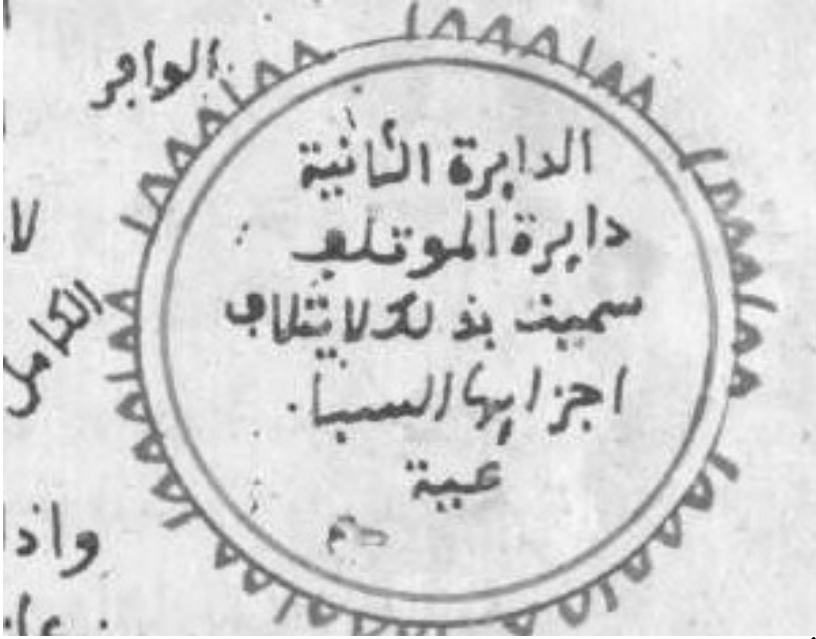 الوافر
الدايرة الثانية
دايرة الموتلف
سميت بذلك لايتلاف
اجزايها السبا
عية
الكامل
لا
واذا